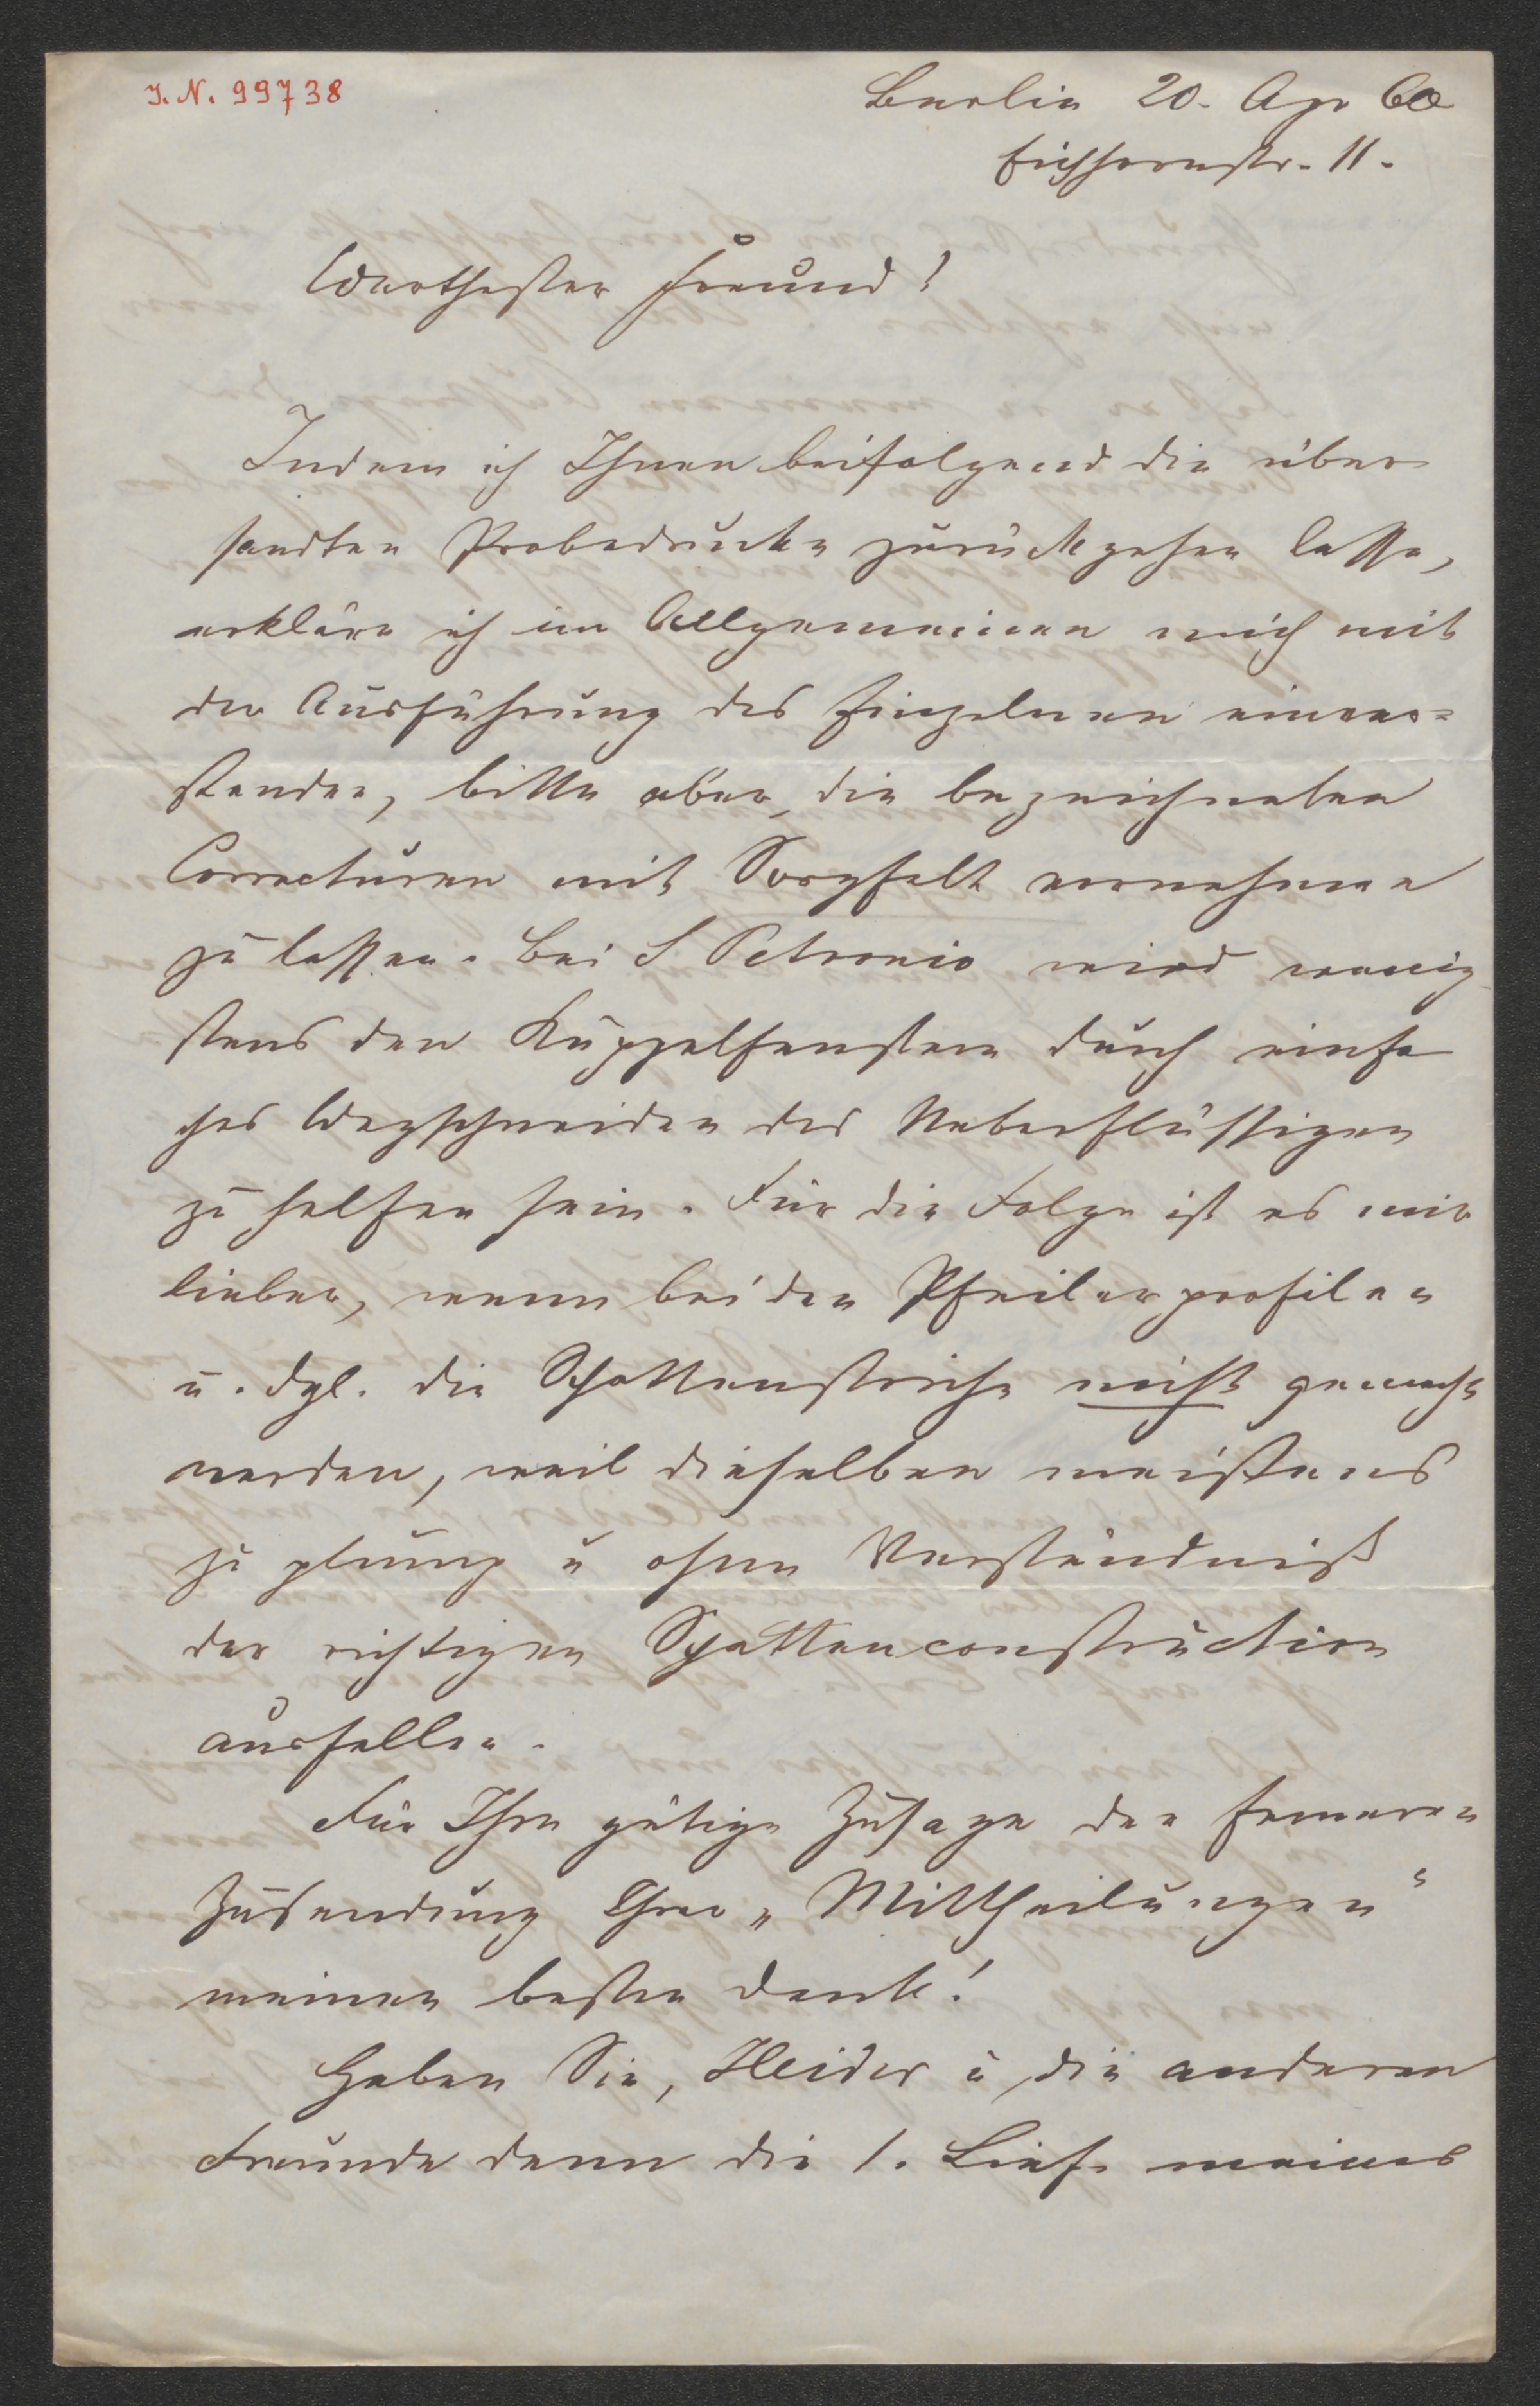 J. N. 99738
Berlin 20. Apr 60
Eichhornstr. 11.
Werthester Freund!
Indem ich Ihnen beifolgend die über
sandten Probedrucke zurückgehen lasse,
erkläre ich im Allgemeinen mich mit
der Ausführung des Einzelnen einver=
standen, bitte aber, die bezeichneten
Correcturen mit Sorgfalt vornehmen
zu lassen. Bei S. Petronio wird wenig
stens den Kuppelfenstern durch einfa
ches Wegschneiden des Ueberflüssigen
zu helfen sein. Für die Folge ist es mir
lieber, wenn bei den Pfeilerprofilen
u. dgl. die Schattenstriche nicht gemacht
werden, weil dieselben meistens
zu plump u ohne Verständniß
der richtigen Schattenconstruction
ausfallen.
Für Ihre gütige Zusage der ferneren
Zusendung Ihrer „Mittheilungen"
meinen besten Dank!
Haben Sie, Heider u die anderen
Freunde denn die 1. Lief. meines